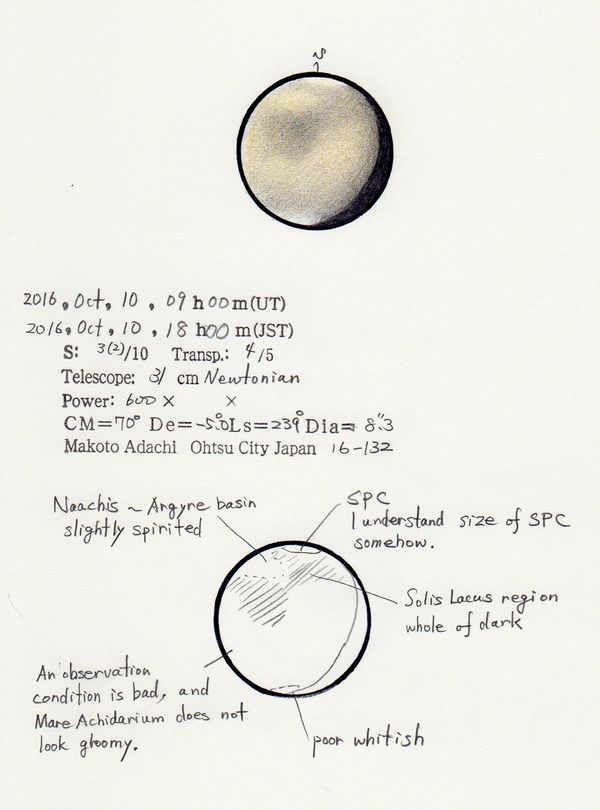 2016, Oct, 10, 09 h 00 m (UT)
2016, Oct, 10, 18 h 00 m (JST)
S: 3(2)/10 Transp.: 4/5
Telescope: 31 cm Newtonian
Power: 600 × ×
CM=70° De=-5.0° Ls=239° Dia= 8".3
Makoto Adachi Ohtsu City Japan 16-132
Noachis ~ Argyre basin
slightly spirited
SPC
I understand size of SPC
somehow.
Solis Lacus region
whole of dark
An observation
condition is bad, and
Mare Achidarium does not
look gloomy.
poor whitish